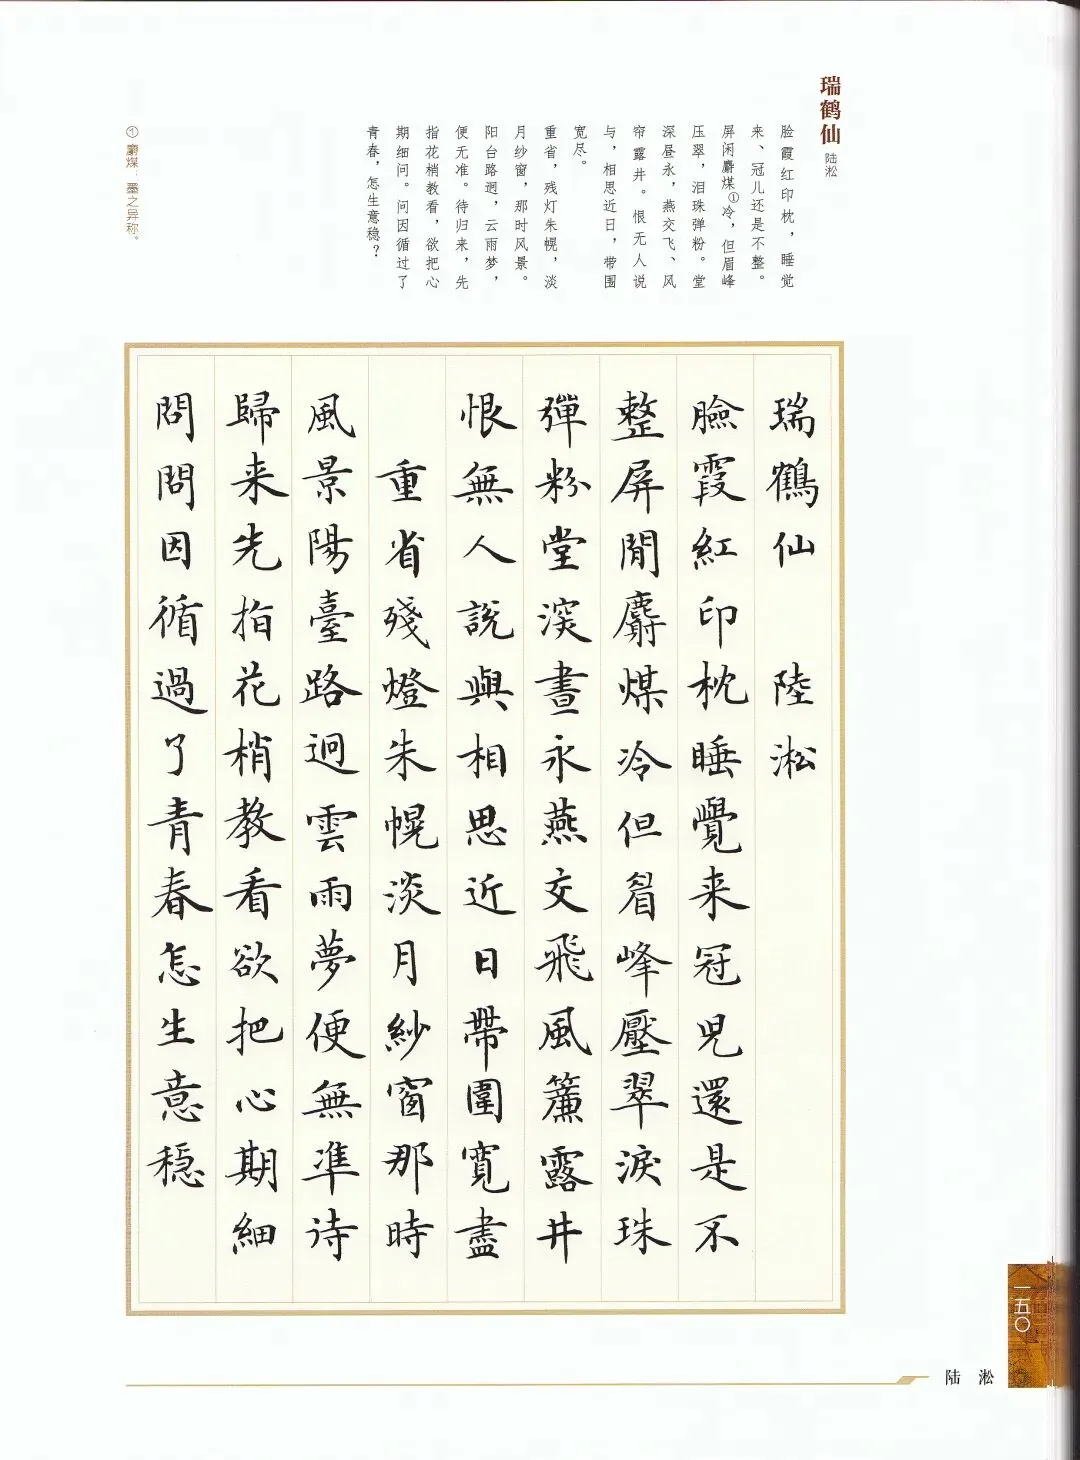 瑞鹤仙 陆淞
脸霞红印枕，睡觉
来、冠儿还是不整。
屏闲麝煤①冷，但眉峰
压翠，泪珠弹粉。堂
深昼永，燕交飞、风
帘露井。恨无人说
与，相思近日，带围
宽尽。
重省，残灯朱幌，淡
月纱窗，那时风景。
阳台路迥，云雨梦，
便无准。待归来，先
指花梢教看，欲把心
期细问。问因循过了
青春，怎生意稳？
① 麝煤：墨之异称。
瑞鶴仙 陸淞
臉霞紅印枕睡覺来冠児還是不
整屏閒麝煤冷但眉峰壓翠淚珠
彈粉堂深晝永燕交飛風簾露井
恨無人説與相思近日帶圍寬盡
重省殘燈朱幌淡月紗窗那時
風景陽臺路迥雲雨夢便無準待
歸来先指花梢教看欲把心期細
問問因循過了青春怎生意穩
一五〇
陆淞